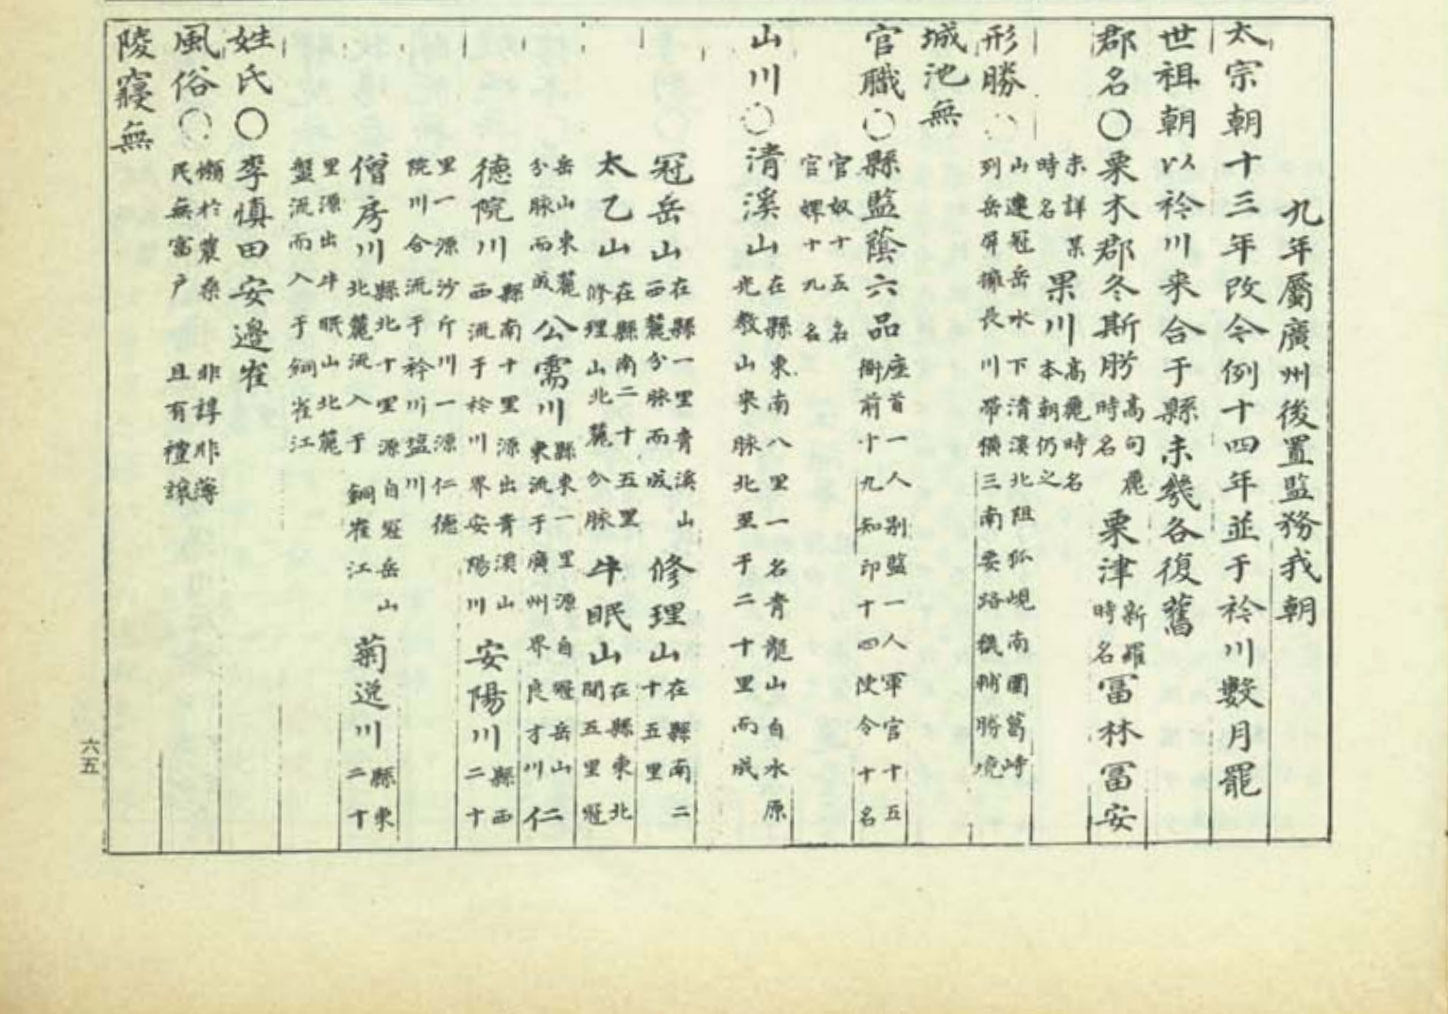 九年屬廣州後置監務我朝
太宗朝十三年改今例十四年並于衿川數月罷
世祖朝以衿川来合于縣未幾各復舊
郡名〇栗木郡冬斯肹高句麗時名栗津新羅時名冨林冨安
未詳某時名果川高麗時名本朝仍之
形勝〇山連冠岳水下清溪北阻狐峴南圍葛峙列岳屏擁長川帶橫三南要路畿輔勝境
城池無
官職〇縣監蔭六品座首一人別監一人軍官十五衙前十九知印十四使令十名
官奴十五名官婢十九名
山川〇清溪山在縣東南八里一名青龍山自水原光教山来脉北至于二十里而成
冠岳山在縣一里青溪山西麓分脉而成修理山在縣南二十五里
太乙山在縣南二十五里修理山北麓分脉牛眠山在縣東北間五里冠
岳山東麓分脉而成公需川縣東一里源自冠岳山東流于廣州界良才川仁二
德院川縣南十里源出青溪山西流于衿川界安陽川安陽川縣西二十
里一源沙斤川一源仁德院川合流于衿川塩川
僧房川縣北十里源自冠岳山北麓流入于銅雀江菊逆川縣東二十
里源出牛眠山北麓盤流而入于銅雀江
姓氏〇李慎田安邊崔
風俗〇懶於農桑民無富户非諄非薄且有禮讓
陵寢無
六五